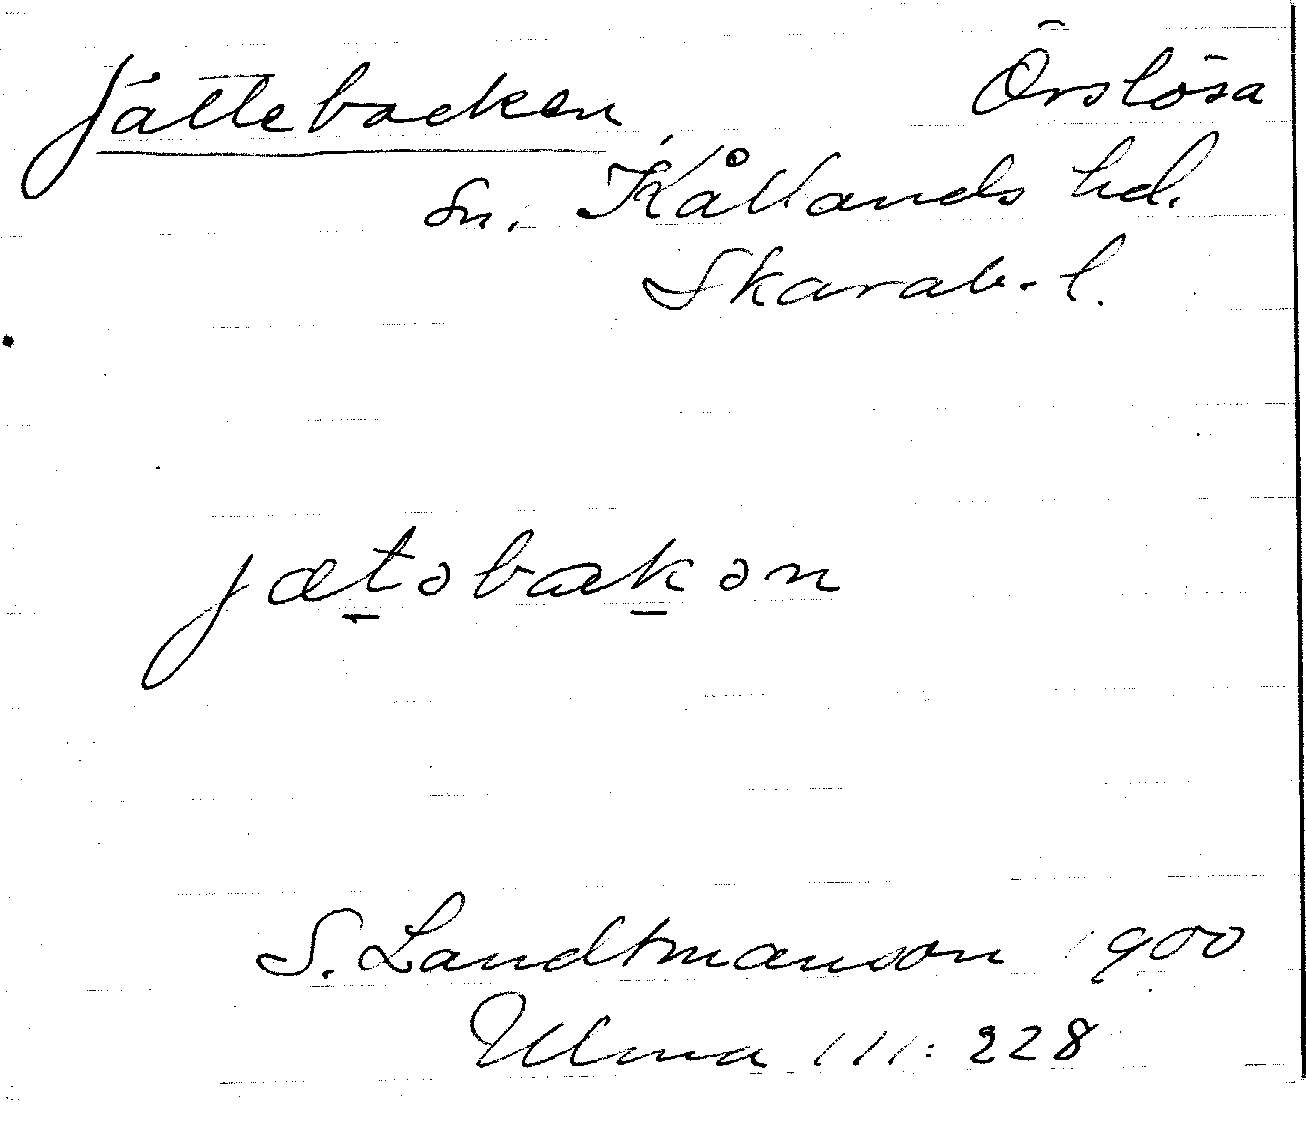 Jättebacken Örslösa
sn. Kållands hd.
Skarab. l.
jætəbakən
S. Landtmanson 1900
Ulma 111:228